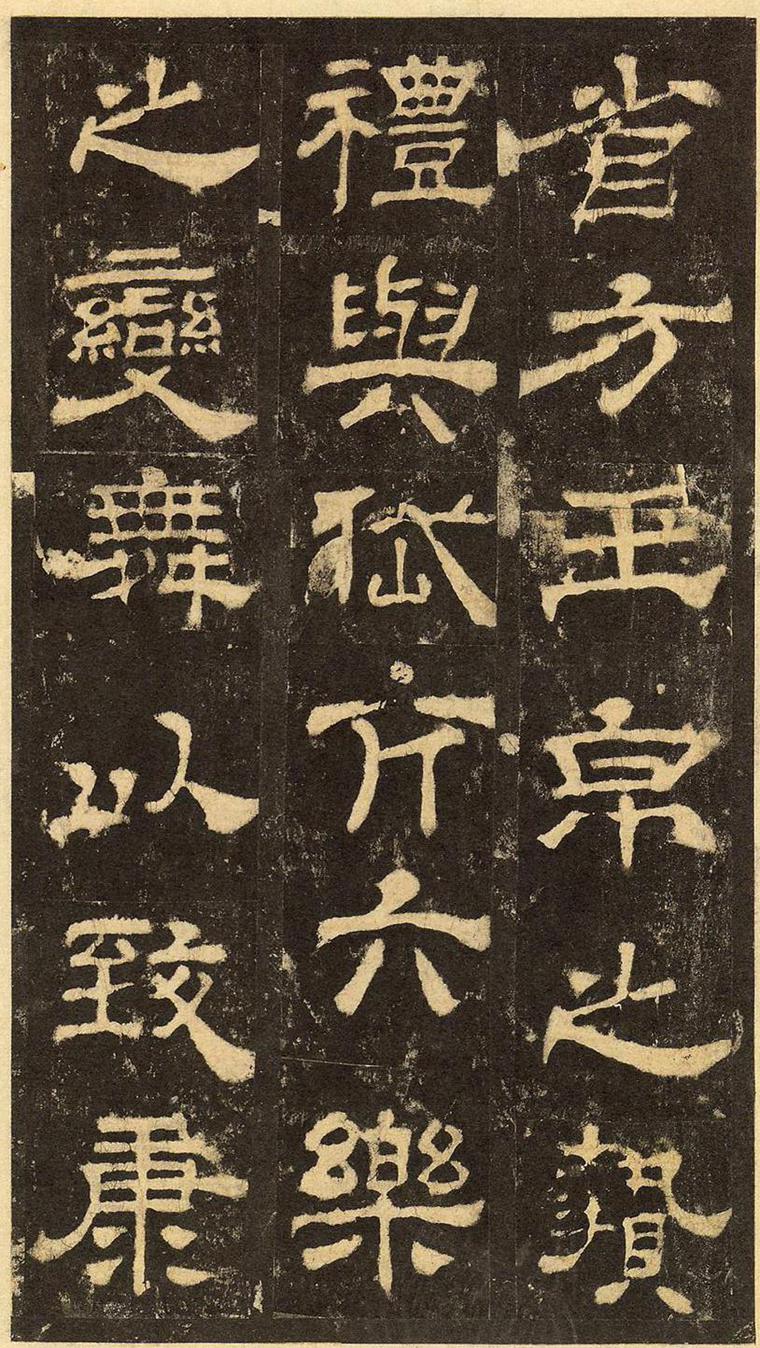 省方玉帛之贄
禮與岱亢六樂
之變舞以致康